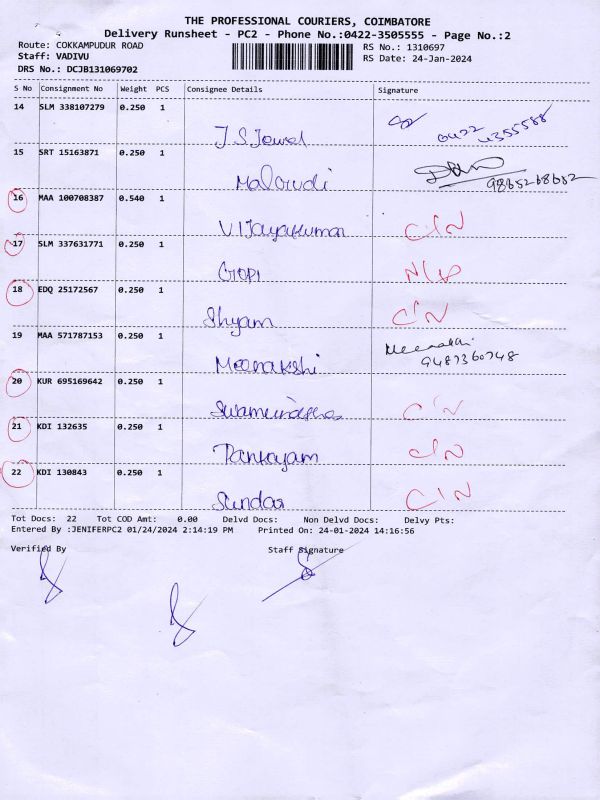 THE PROFESSIONAL COURIERS, COIMBATORE
Delivery Runsheet - PC2 - Phone No.:0422-3505555 - Page No.:2
Route: COKKAMPUDUR ROAD RS No.: 1310697
Staff: VADIVU RS Date: 24-Jan-2024
DRS No.: DCJB131069702
S No Consignment No Weight PCS Consignee Details Signature
14 SLM 338107279 0.250 1
J.S.Jewel 0422 4355588
15 SRT 15163871 0.250 1
9865268682
16 MAA 100708387 0.540 1
Vijayakumar C/N
17 SLM 337631771 0.250 1
Gopi
18 EDQ 25172567 0.250 1
Shyam C/N
19 MAA 571787153 0.250 1 Meenakshi
Meenakshi 9487360748
20 KUR 695169642 0.250 1
C/N
21 KDI 132635 0.250 1
Pankayam C/N
22 KDI 130843 0.250 1
Sundar C/N
Tot Docs: 22 Tot COD Amt: 0.00 Delvd Docs: Non Delvd Docs: Delvy Pts:
Entered By :JENIFERPC2 01/24/2024 2:14:19 PM Printed On: 24-01-2024 14:16:56
Verified By Staff Signature